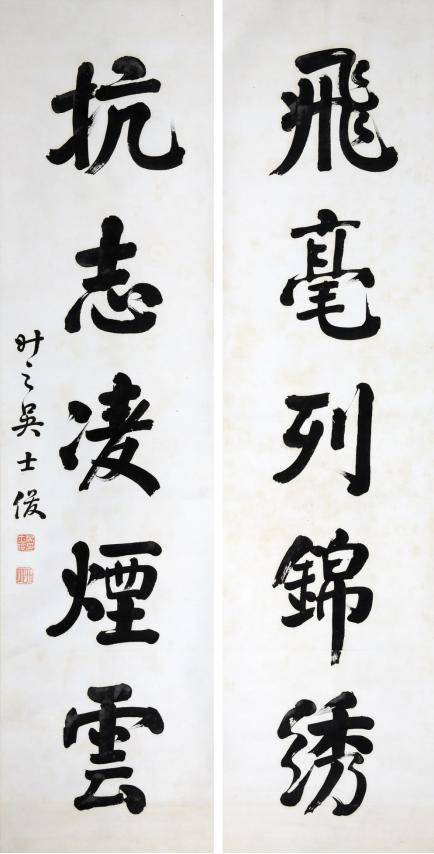 飛毫列錦绣
抗志凌煙雲
吴士俊